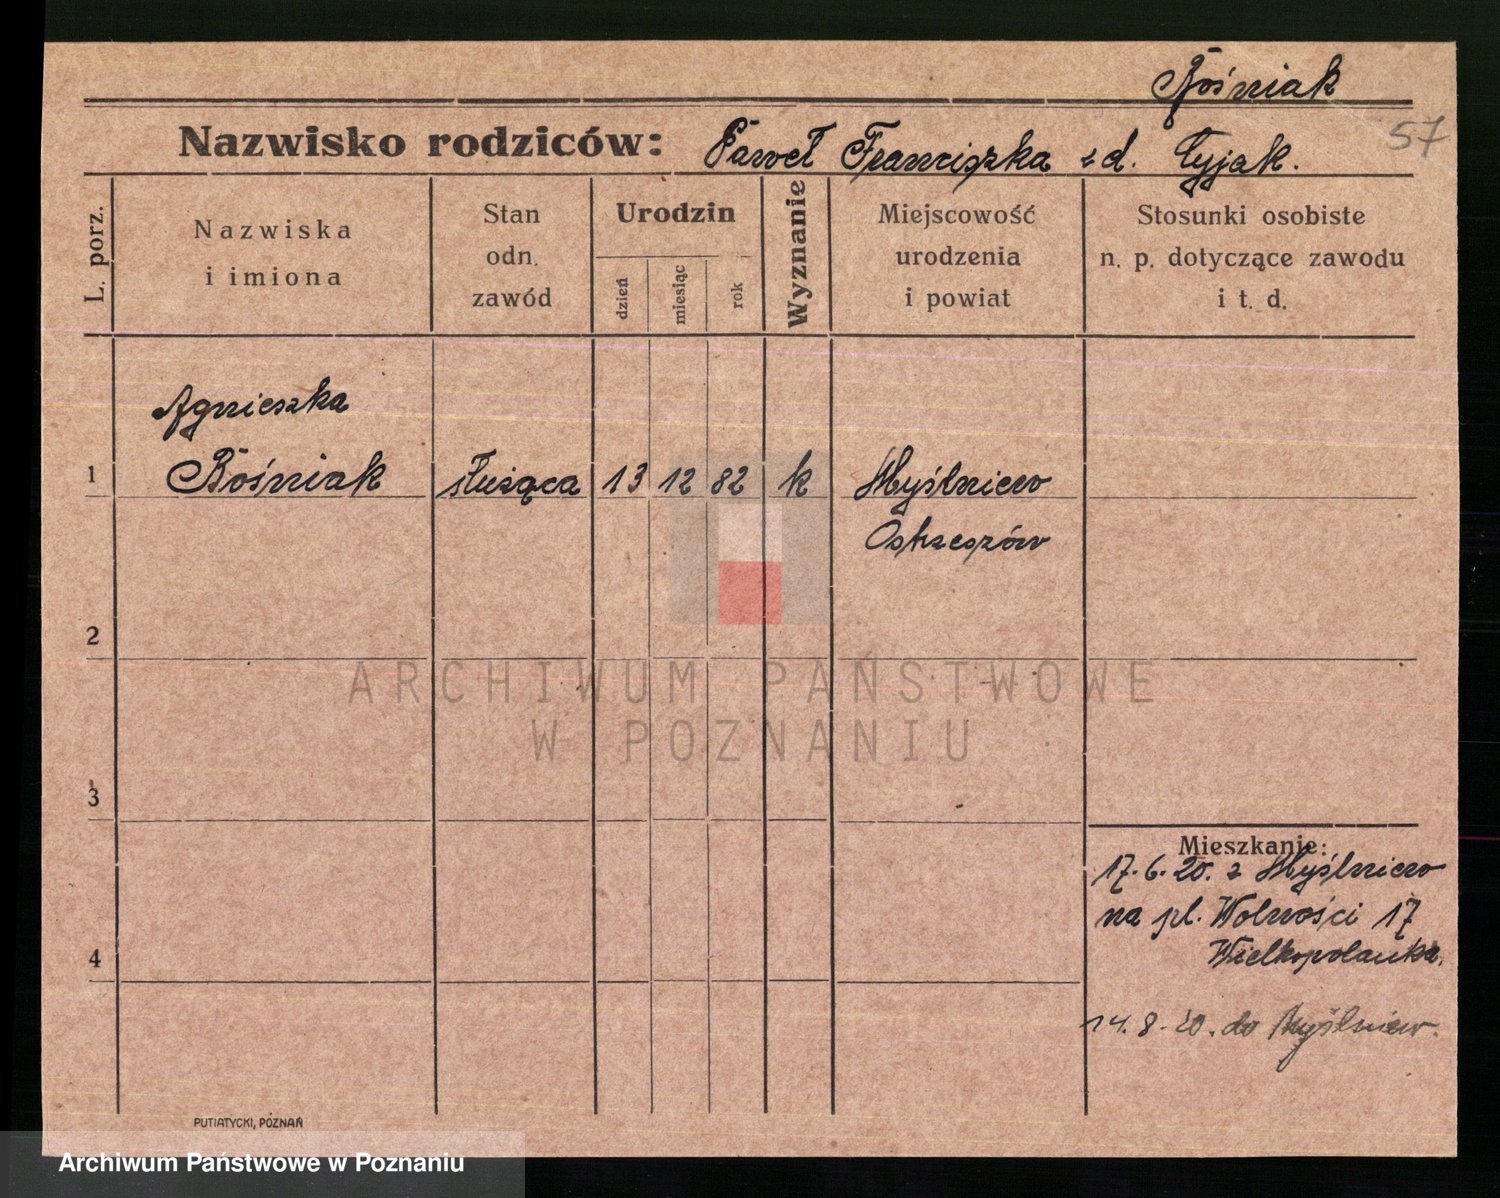 Bośniak
57
Nazwisko rodziców: Paweł Franciszka z d. Cyjak.
L. porz.
Nazwiska i imiona
Stan odn. zawód
Urodzin
dzień
miesiąc
rok
Wyznanie
Miejscowość urodzenia i powiat
Stosunki osobiste n. p. dotyczące zawodu i t. d.
Agnieszka
1 Bośniak służąca 13 12 82 k Myślniew
Ostrzeszów
2
ARCHIWUM PAŃSTWOWE
W POZNANIU
3
Mieszkanie:
17.6.20. z Myślniew
na pl. Wolności 17
Wielkopolanka.
4
14.8.20. do Myślniew.
PUTIATYCKI, POZNAŃ
Archiwum Państwowe w Poznaniu